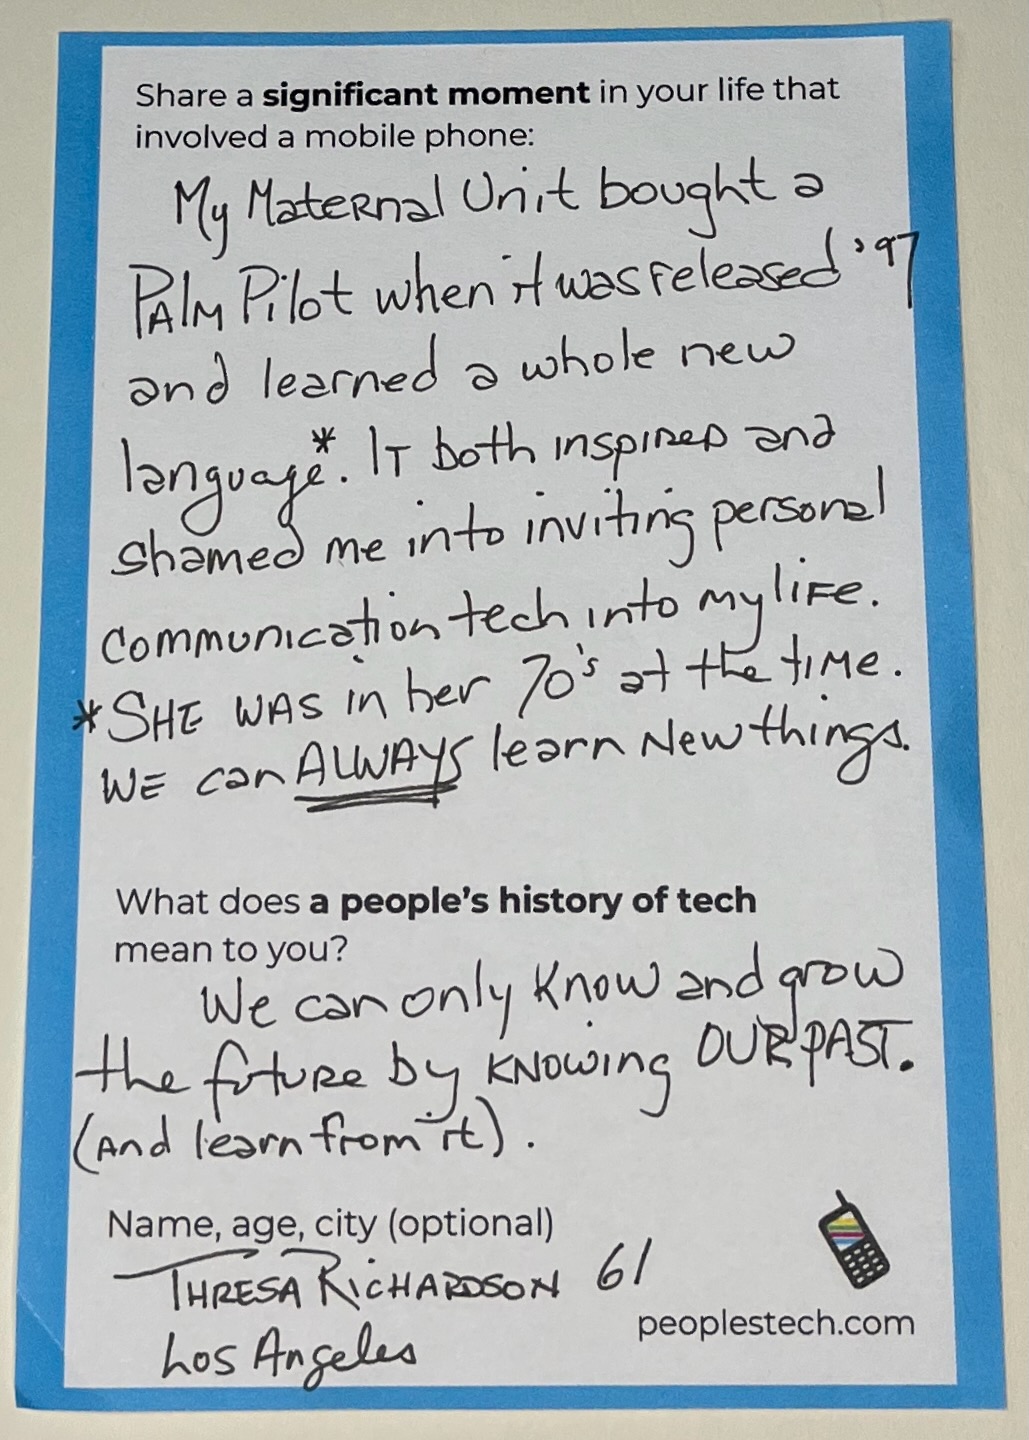 Share a significant moment in your life that
involved a mobile phone:
My Maternal Unit bought a
PALM Pilot when it was released '97
and learned a whole new
language*. IT both inspired and
shamed me into inviting personal
communication tech into my life.
*SHE WAS in her 70's at the time.
WE can ALWAYS learn New things.
What does a people's history of tech
mean to you?
We can only know and grow
the future by knowing OUR PAST.
(And learn from it).
Name, age, city (optional)
THRESA RICHARDSON 61
Los Angeles
peoplestech.com